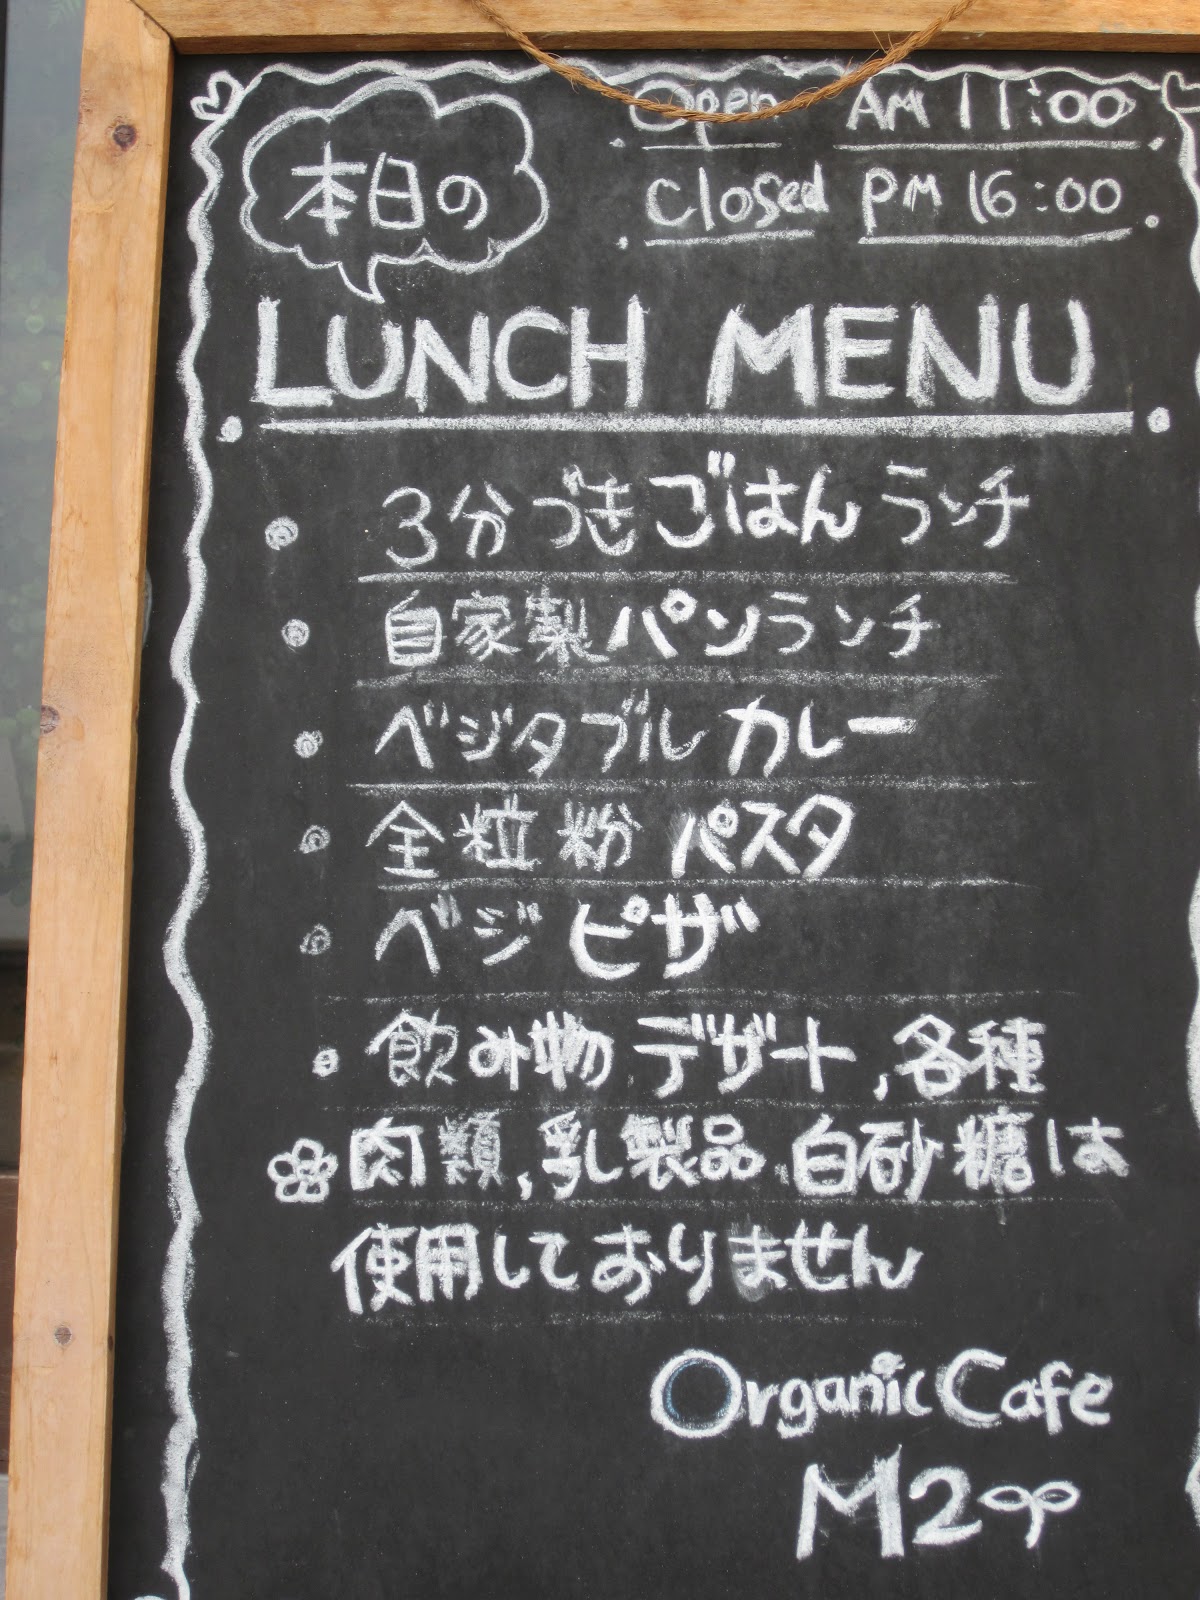 本日の
Open AM 11:00
Closed PM 16:00
LUNCH MENU
3分づきごはんランチ
自家製パンランチ
ベジタブルカレー
全粒粉パスタ
ベジピザ
飲み物 デザート,各種
肉類,乳し製品,白砂糖は
使用しておりません
Organic Cafe
M2